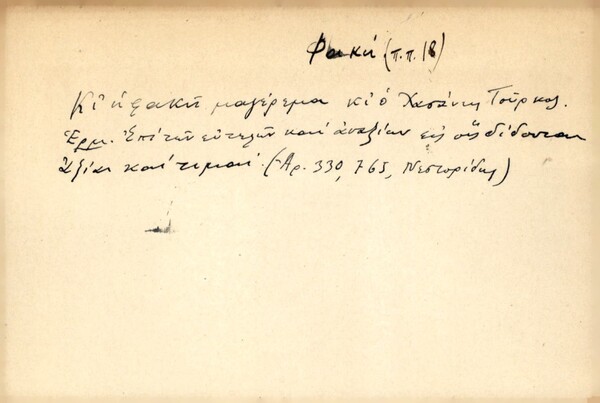 Φακή (π.π. 18)
Κι' ἡ φακή μαγέρεμα κι' ὁ Χασάνης Τοῦρκος.
Ἑρμ. Ἐπί τῶν εὐτελῶν καί ἀναξίων εἰς οὓς δίδονται
ἀξίαι καί τιμαί. (Ἀρ. 330, 765, Νεστορίδης)